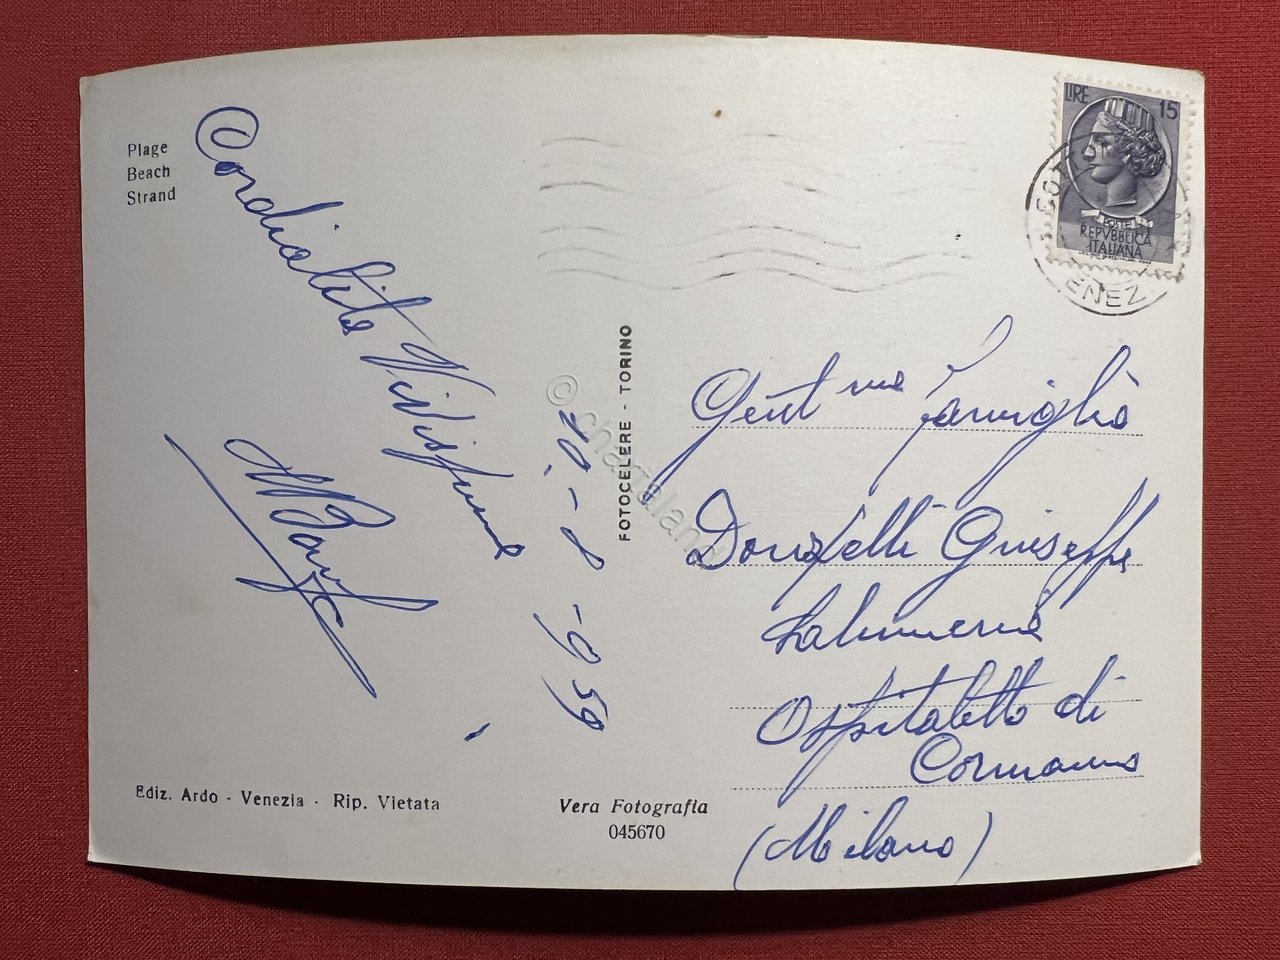 Plage
Beach
Strand
Cordialità Vivissime
20-8-959
Ediz. Ardo - Venezia - Rip. Vietata
FOTOCELERE - TORINO
Vera Fotografia
045670
LIRE 15
POSTE
REPVBBLICA
ITALIANA
ENEZ
Gent me Famiglia
Donzelli Giuseppe
Salumeria
Ospitaletto di
Cormano
(Milano)
© chartaland